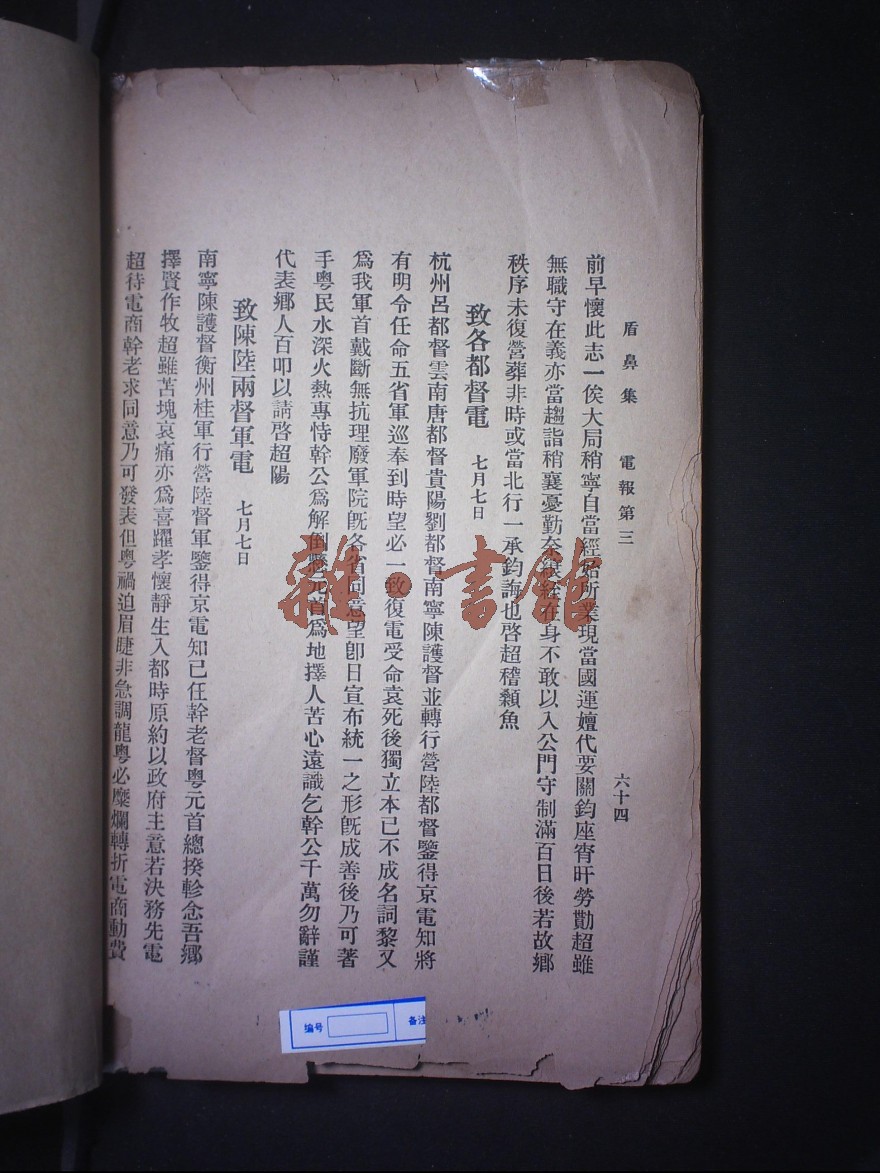 盾鼻集　電報第三
六十四
前早懷此志一俟大局稍寧自當經始所業現當國運嬗代要關鈞座宵旰勞勩超雖
無職守在義亦當趨詣稍襄憂勤奈衰絰在身不敢以入公門守制滿百日後若故鄉
秩序未復營葬非時或當北行一承鈞誨也啓超稽顙魚
致各都督電　七月七日
杭州呂都督雲南唐都督貴陽劉都督南寧陳護督並轉行營陸都督鑒得京電知將
有明令任命五省軍巡奉到時望必一致復電受命袁死後獨立本已不成名詞黎又
爲我軍首戴斷無抗理廢軍院既各省同意望卽日宣布統一之形旣成善後乃可著
手粵民水深火熱專恃幹公爲解倒懸元首爲地擇人苦心遠識乞幹公千萬勿辭謹
代表鄉人百叩以請啓超陽
致陳陸兩督軍電　七月七日
南寧陳護督衡州桂軍行營陸督軍鑒得京電知已任幹老督粵元首總揆軫念吾鄉
擇賢作牧超雖苫塊哀痛亦爲喜躍孝懷靜生入都時原約以政府主意若決務先電
超待電商幹老求同意乃可發表但粵禍迫眉睫非急調龍粵必糜爛轉折電商動費
雜·書館
编号
备注